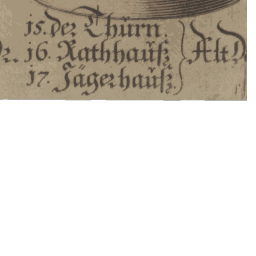 15. der Thürn.
16. Rathhauß Alt
17. Jägerhauß.